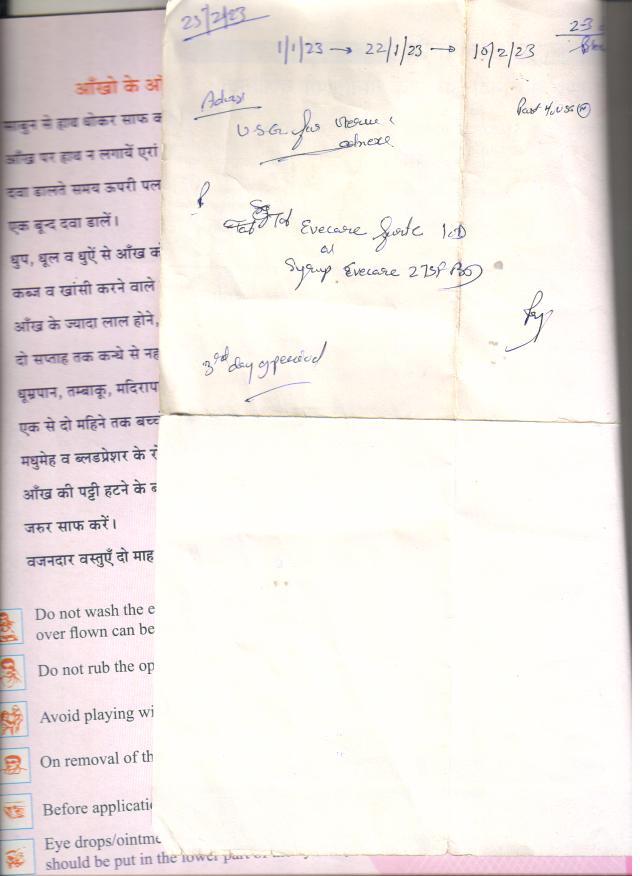 23/2/23
1/1/23 → 22/1/23 → 10/2/23
2-3
Advise
USG for uterus &
adnexa
Past H/USG (N)
Tab Evecare forte 1 OD
or
Syrup Evecare 2TSF BD
3rd day of period
आँखो के
साबुन से हाथ धोकर साफ
आँख पर हाथ न लगायें एवं
दवा डालते समय ऊपरी पल
एक बून्द दवा डालें।
धुप, धूल व धुऐं से आँख
कब्ज व खांसी करने वाले
आँख के ज्यादा लाल होने,
दो सप्ताह तक कन्धे से
धूम्रपान, तम्बाकू, मदिराप
एक से दो महिने तक
मधुमेह व ब्लडप्रेशर के
आँख की पट्टी हटने के
जरुर साफ करें।
वजनदार वस्तुएँ दो माह
Do not wash the e
over flown can be
Do not rub the op
Avoid playing wi
On removal of th
Before applicati
Eye drops/ointme
should be put in the lower part of